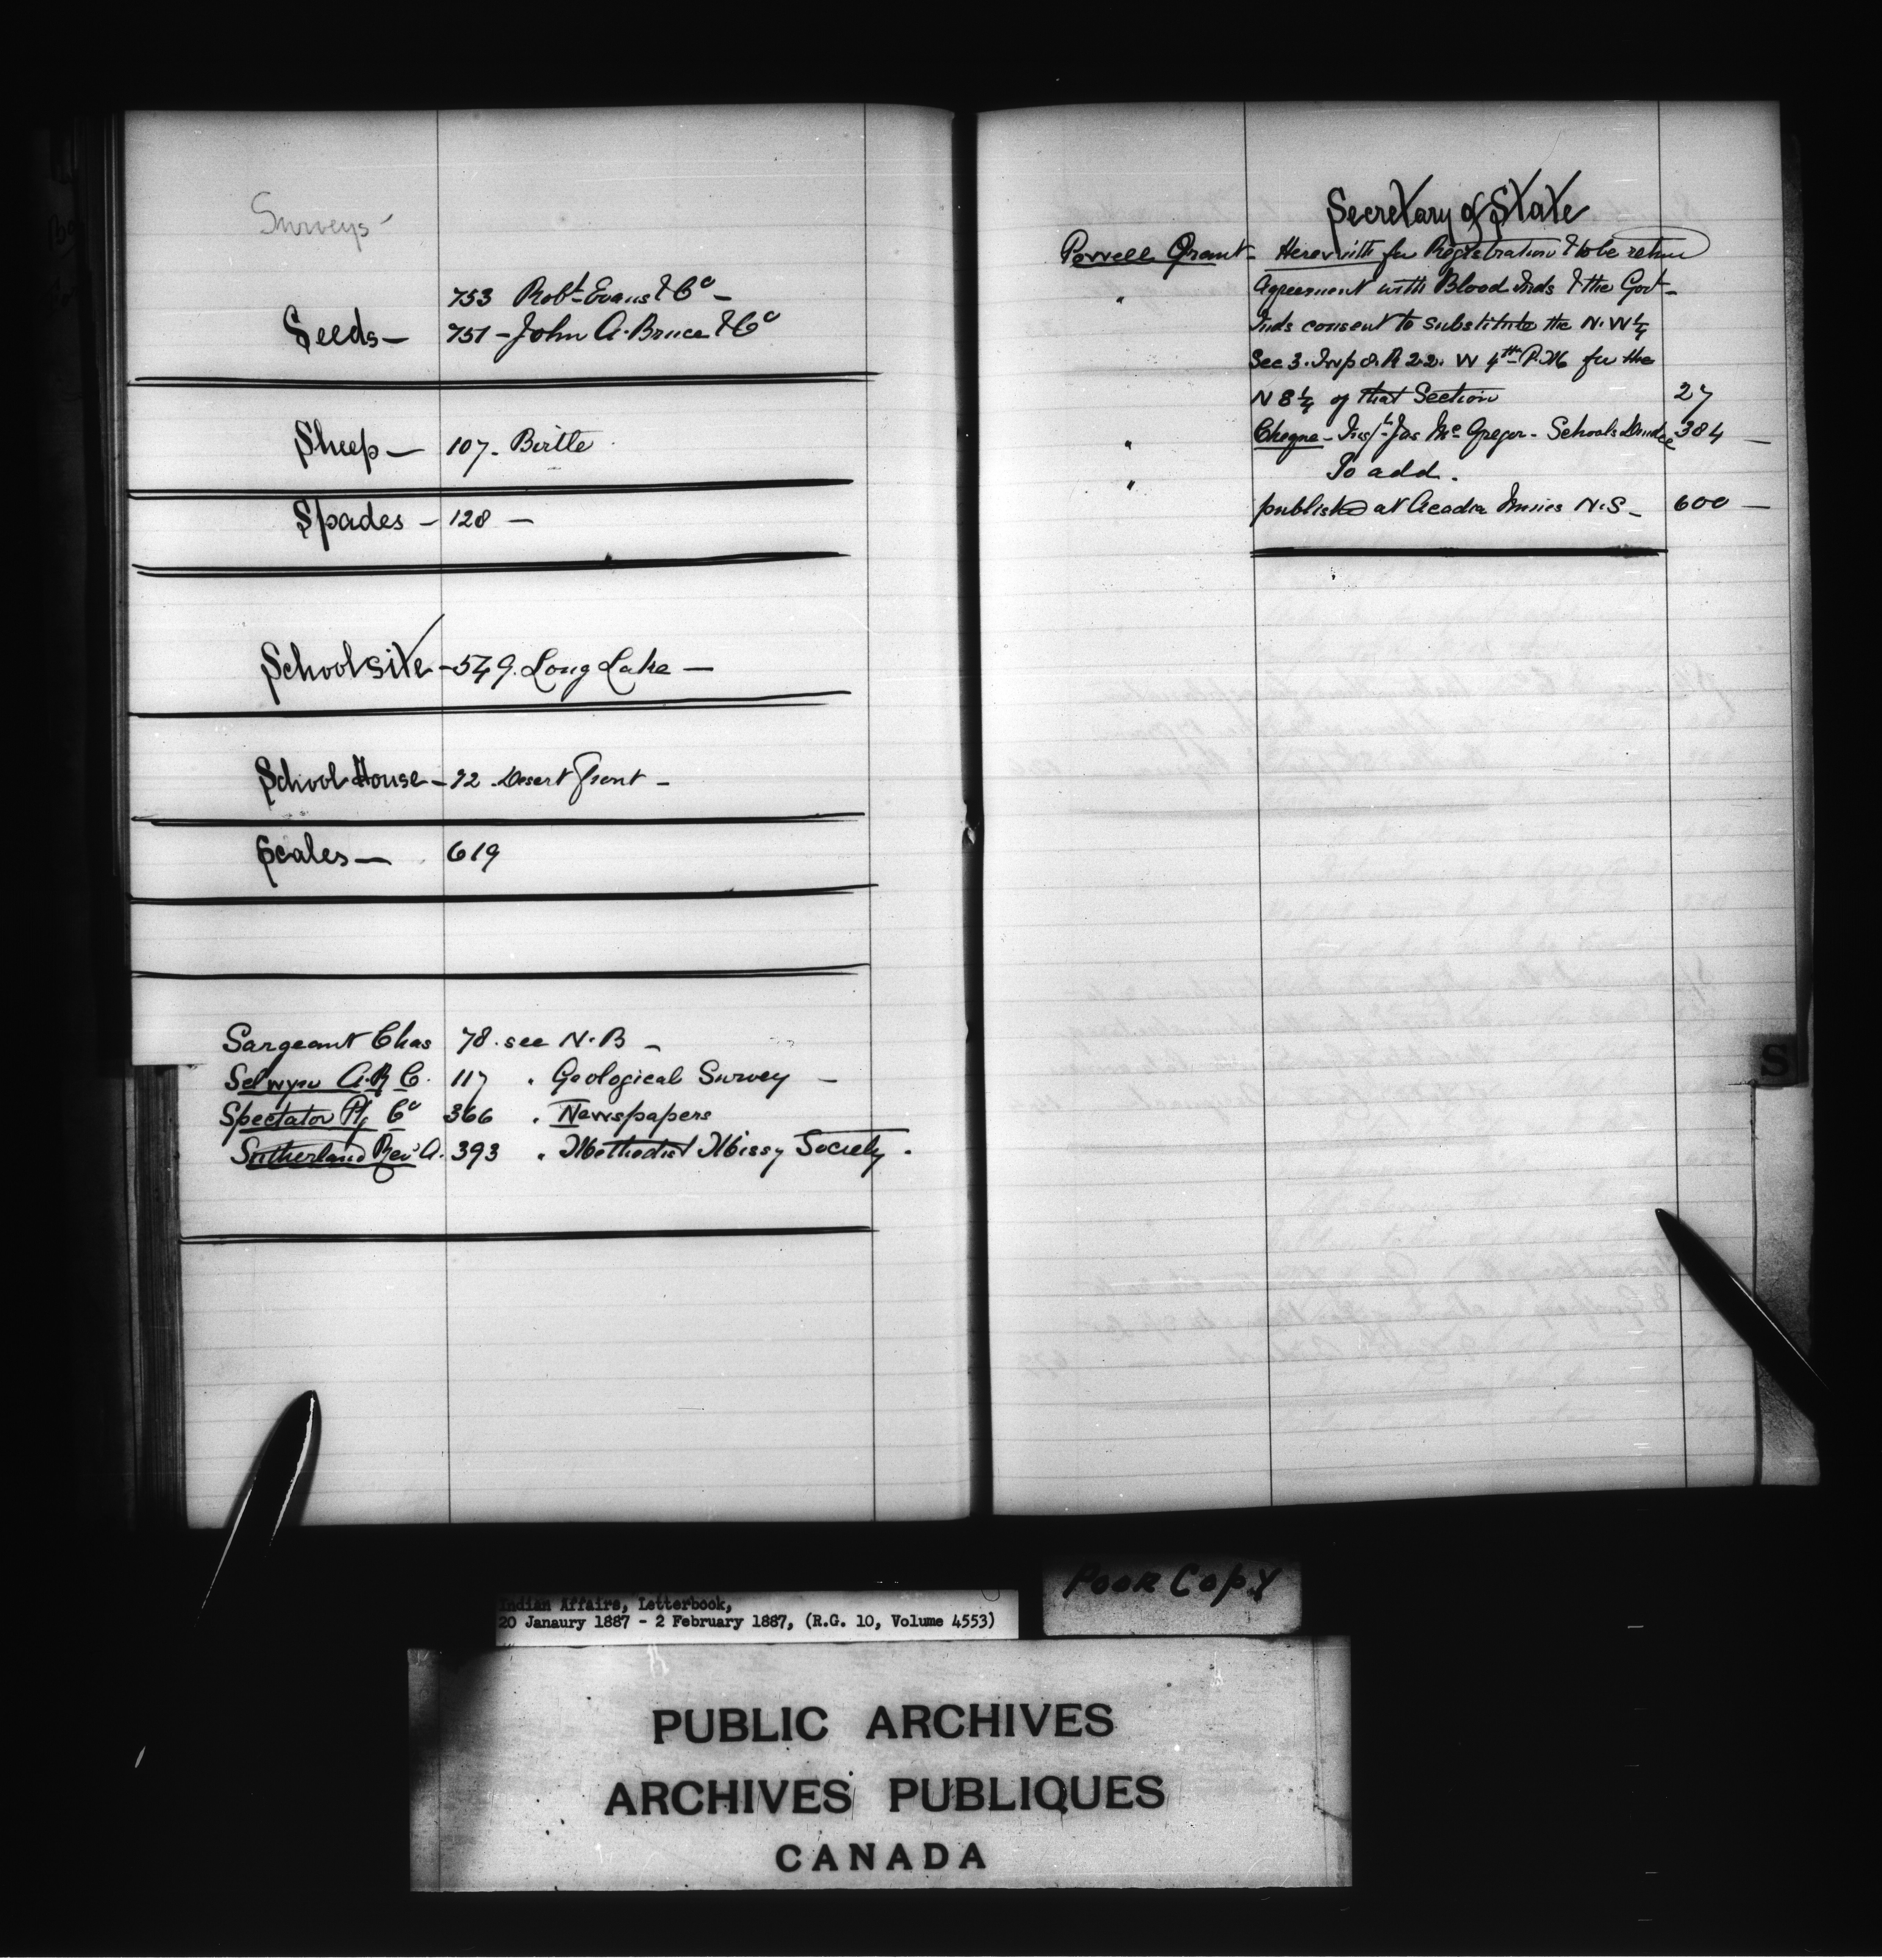 Surveys -
753 Robt Evans & Co -
Seeds - 751 - John A. Bruce & Co
Sheep - 107. Birtle
Spades - 128 -
School site - 549. Long Lake -
School House - 92. Desert Front -
Scales - 619
Sargeant Chas 78. see N.B -
Selwyn A.R.C. 117 " Geological Survey -
Spectator Pg Co 366 " Newspapers
Sutherland Rev A. 393 " Methodist Missy Society.
Secretary of State
Powell Grant - Herewith for Registration & to be return
" Agreement with Blood Inds & the Govt -
Inds consent to substitute the N.W 1/4
Sec 3. Twp 8. R 22. W 4th P.M for the
N E 1/4 of that Section 27
" Cheque - Jas McGregor - Schools 384 -
" To add.
publish at Acadia Mines N.S - 600 -
S
Poor Copy
Indian Affairs, Letterbook,
20 Janaury 1887 - 2 February 1887, (R.G. 10, Volume 4553)
PUBLIC ARCHIVES
ARCHIVES PUBLIQUES
CANADA